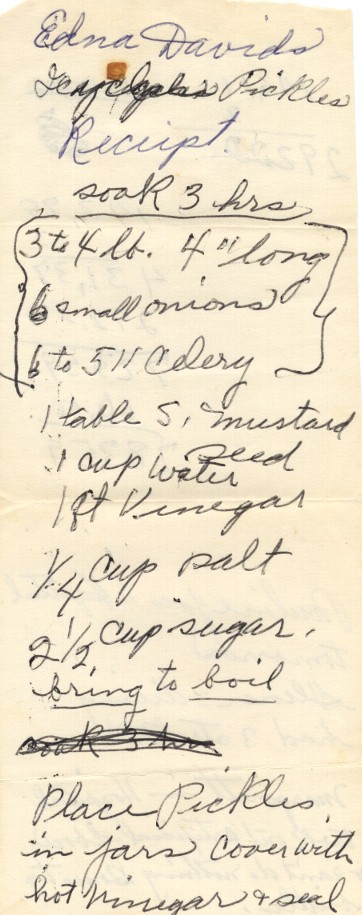 Edna Davids
Icycles Pickles
Receipt
soak 3 hrs
3 to 4 lb. 4" long
6 small onions
6 to 5" Celery
1 table S. mustard
seed
1 cup water
1 qt Vinegar
1/4 cup salt
2 1/2 cup sugar.
bring to boil
soak 3 hrs
Place Pickles
in jars cover with
hot vinegar & seal